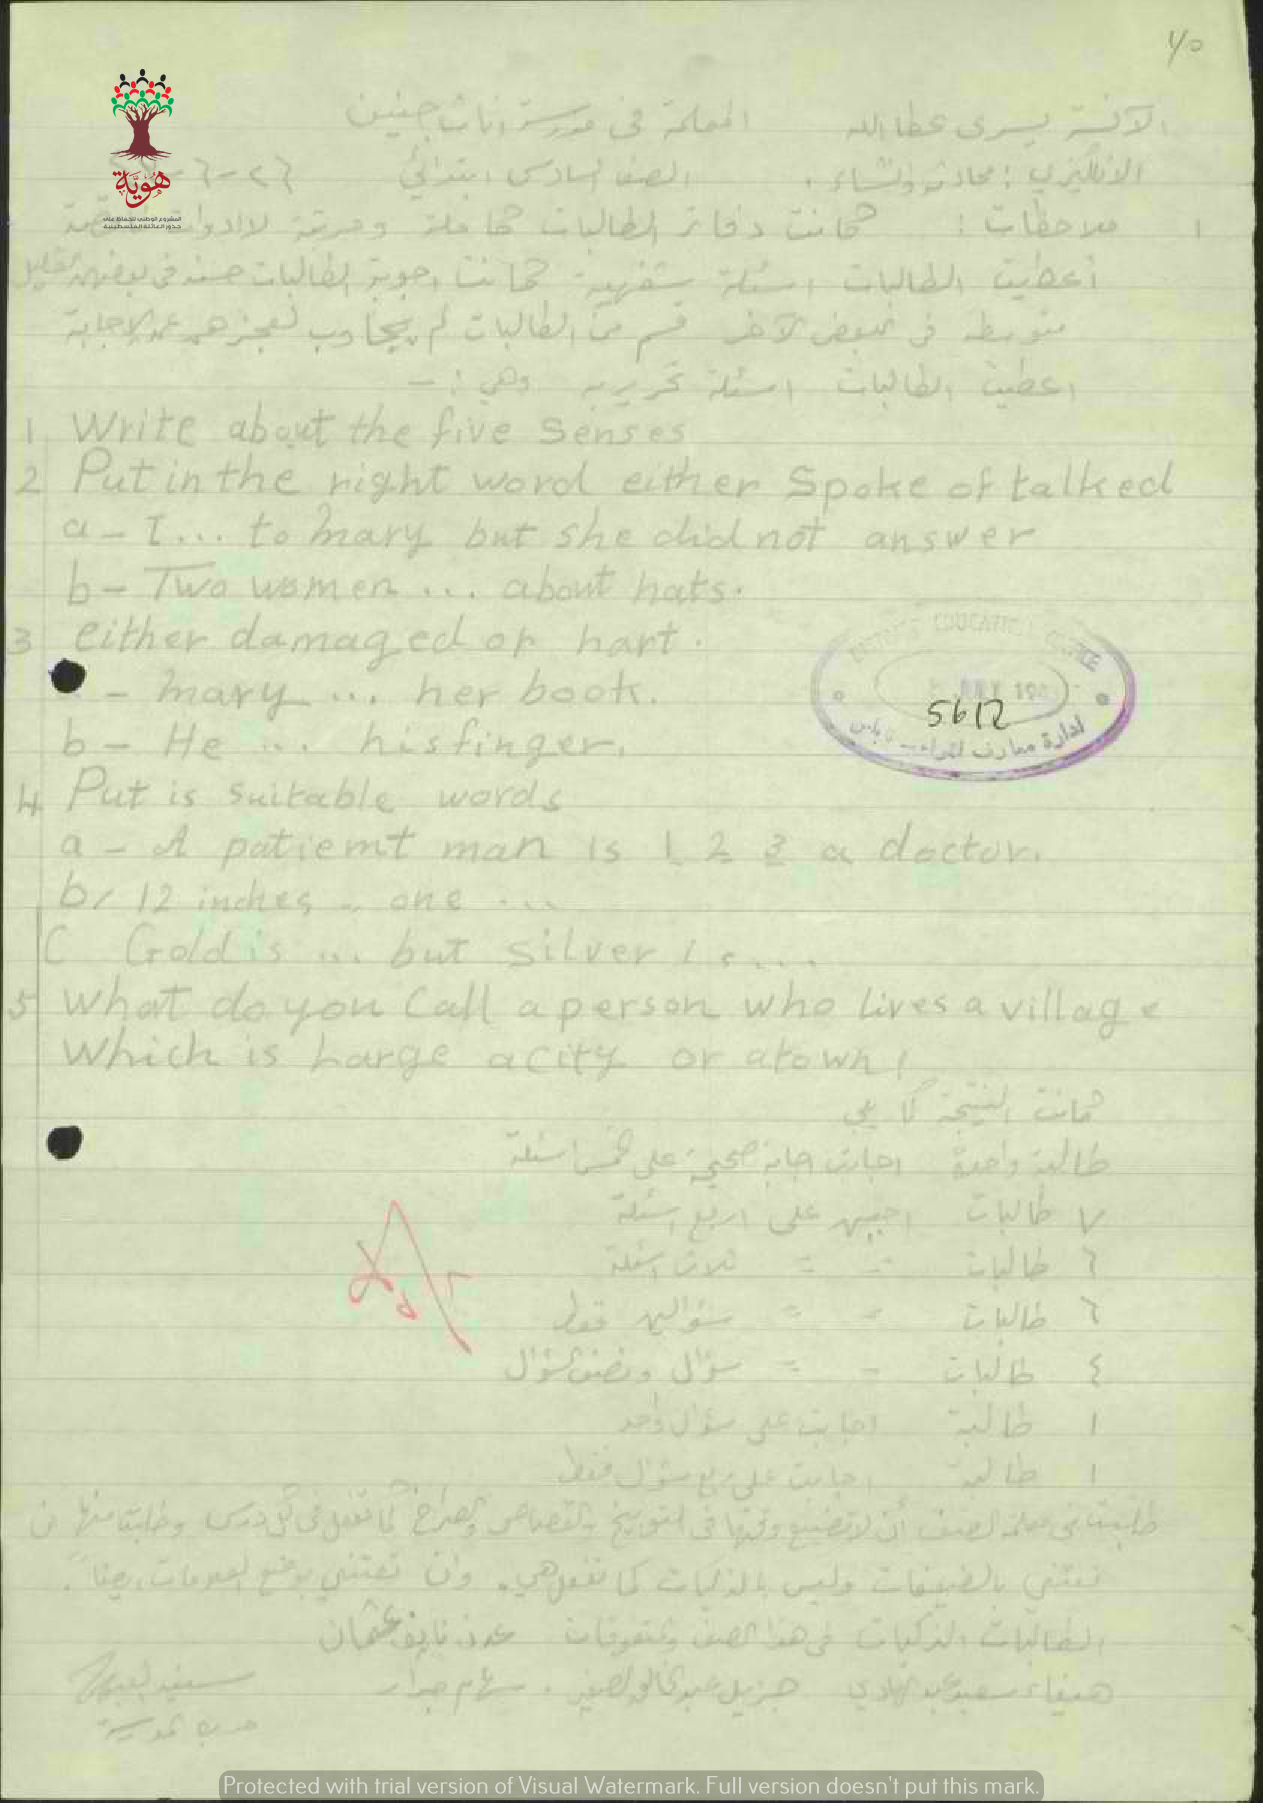 ١/٥
الآنسة يسرى عطا الله المعلمة في مدرسة اناث جنين
الانكليزي : محادثة وانشاء . الصف السادس ابتدائي ٢٦-٦-
هوية
المشروع الوطني للحفاظ على
جذور العائلة الفلسطينية
١ ملاحظات : كانت دفاتر الطالبات كاملة ومرتبة
أعطيت الطالبات اسئلة شفهية كانت اجوبة الطالبات حسنة في بعضهن
متوسطة في البعض الآخر قسم من الطالبات لم يجاوب لعجزهم عن الاجابة
اعطيت الطالبات اسئلة تحريرية وهي : -
1 Write about the five Senses
2 Put in the right word either Spoke of talked
a - I ... to mary but she did not answer
b - Two women ... about hats.
3 either damaged or hart.
- mary ... her book.
b - He ... his finger.
DISTRICT EDUCATION OFFICE
5612
ادارة معارف لواء نابلس
4 Put is suitable words
a - A patiemt man is 1 2 3 a doctor.
b / 12 inches - one ...
C Gold is ... but silver is ....
5 What do you Call a person who lives a village
Which is harge a city or a town !
كانت النتيجة كما يلي
طالبة واحدة اجابت اجابة صحيحة على خمس اسئلة
٧ طالبات اجبن على اربع اسئلة
٦ طالبات = = ثلاث اسئلة
٦ طالبات = = سؤالين فقط
٤ طالبات = = سؤال ونصف السؤال
١ طالبة اجابت على سؤال واحد
١ طالبة اجابت على ربع سؤال فقط
طلبت من معلمة الصف أن لا تضيع وقتها في التوبيخ والقصاص والصراخ كما تفعل في كل درس وطلبت منها ان
تعتني بالضعيفات وليس بالذكيات كما تفعل هي . وان تعتني بوضع العلامات ايضاً .
الطالبات الذكيات في هذا الصف والمتفوقات عدن نايف عثمان
هيفاء سعيد عبد الهادي سهام جرار
مديرة المدرسة
Protected with trial version of Visual Watermark. Full version doesn't put this mark.